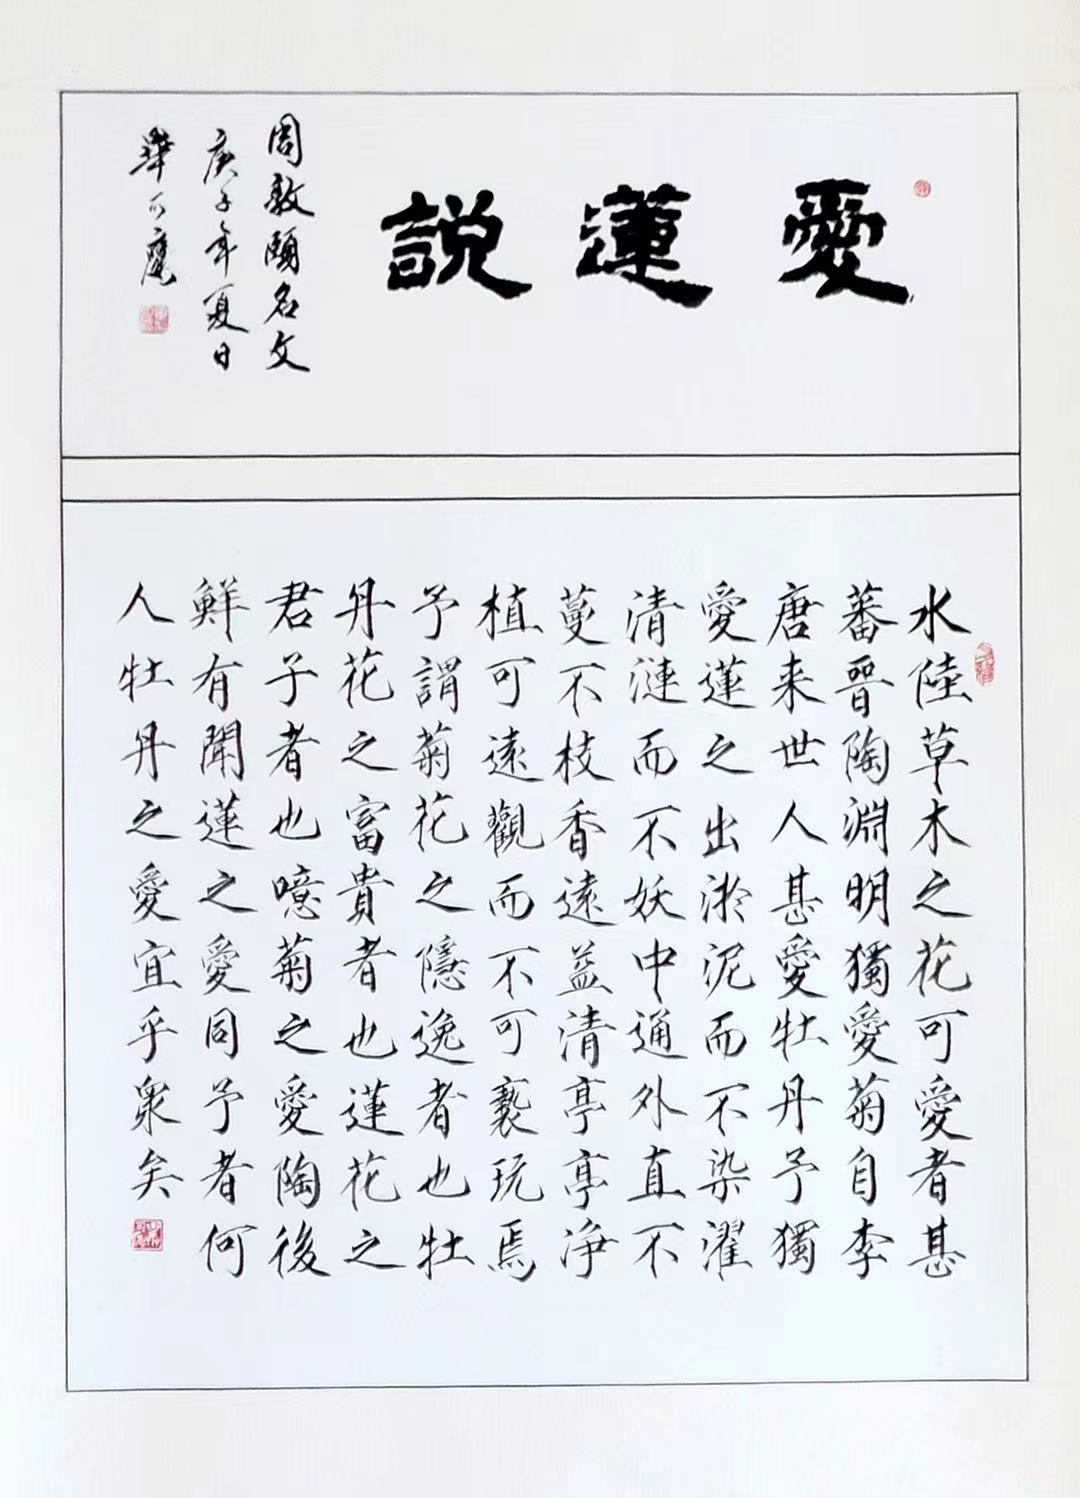 愛蓮說
周敦頤名文
庚子年夏日
水陸草木之花可愛者甚
蕃晉陶淵明獨愛菊自李
唐来世人甚愛牡丹予獨
愛蓮之出淤泥而不染濯
清漣而不妖中通外直不
蔓不枝香遠益清亭亭净
植可遠觀而不可褻玩焉
予謂菊花之隱逸者也牡
丹花之富貴者也蓮花之
君子者也噫菊之愛陶後
鮮有聞蓮之愛同予者何
人牡丹之愛宜乎衆矣